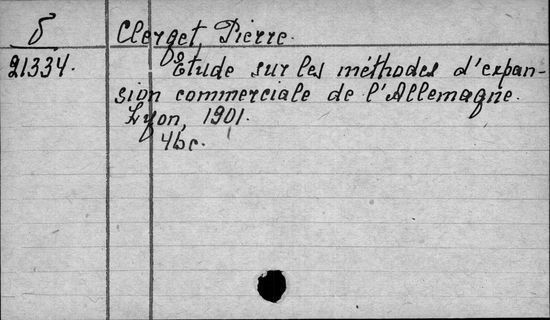 б
21334.
Clerget Pierre.
Etude sur les méthodes d'expan-
sion commerciale de l'Allemagne.
Lyon, 1901.
46 c.